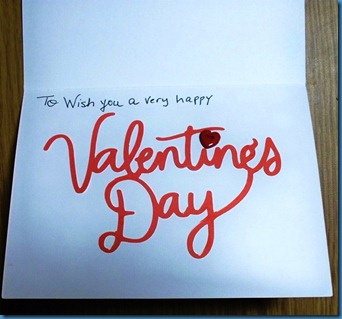 To Wish you a very happy
Valentines
Day